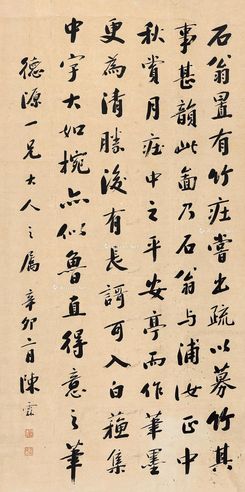 石翁置有竹庄嘗出疏以募竹其
事甚韻此圖乃石翁與浦汝正中
秋賞月庄中之平安亭而作筆墨
更為清勝後有長謌可入白蘓集
中字大如椀亦似魯直得意之筆
德源一兄大人之屬辛卯二月陳